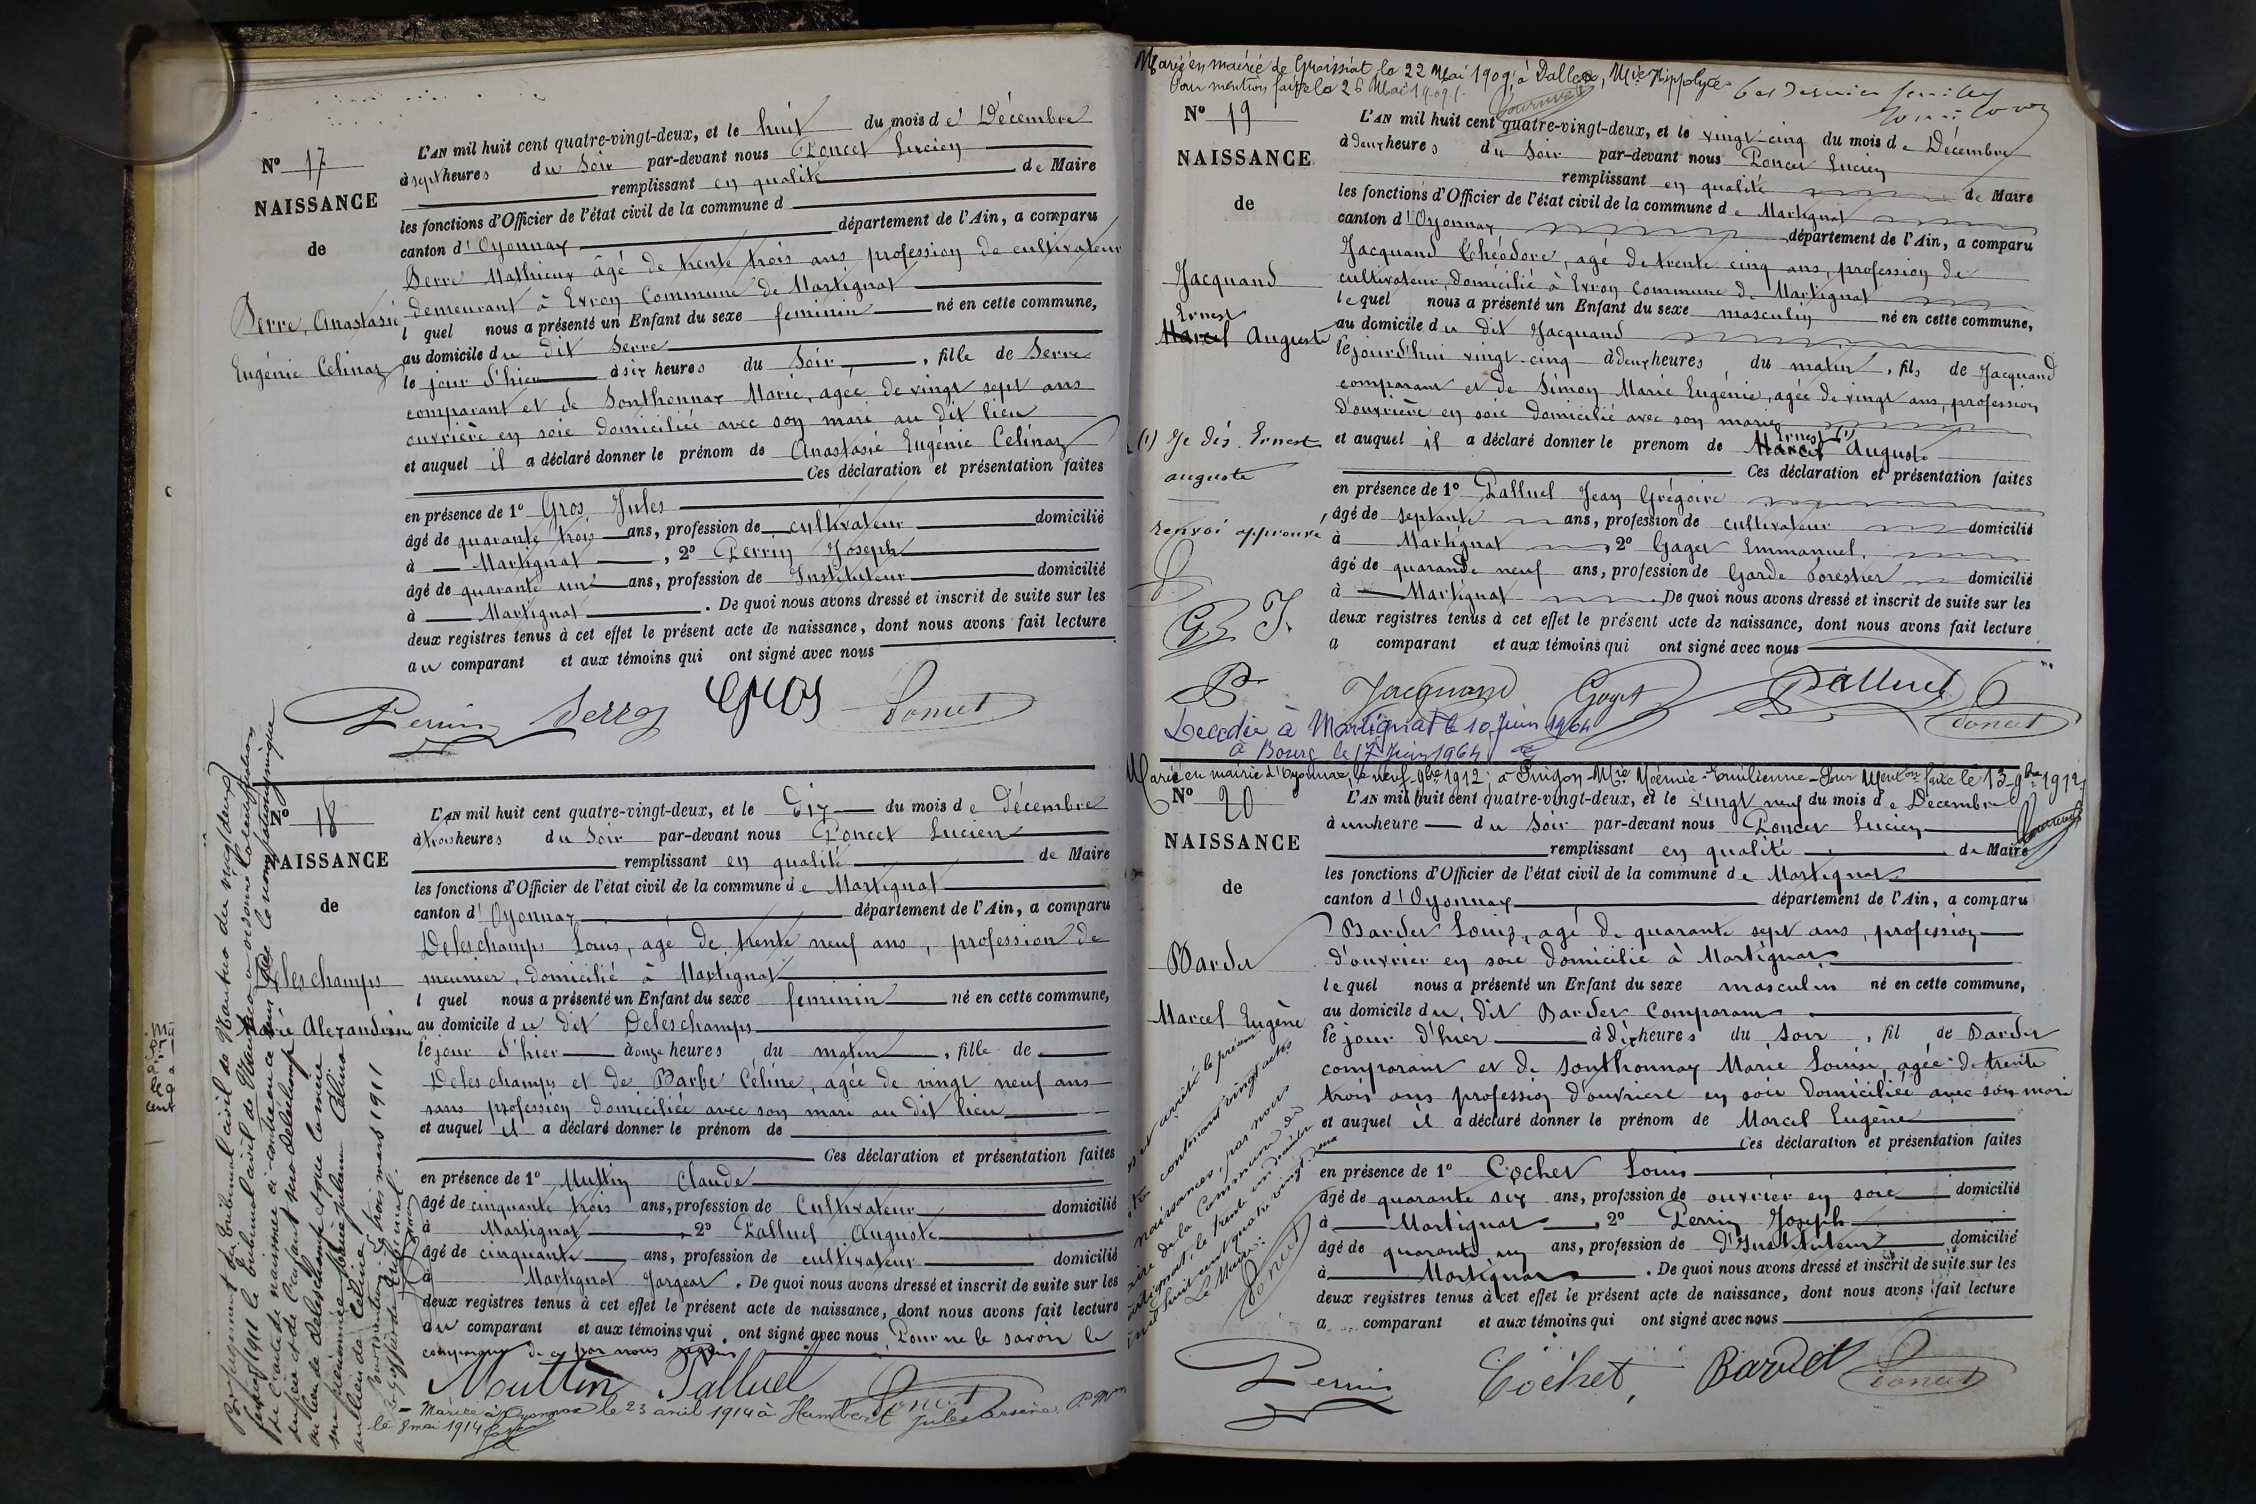 N° 17
NAISSANCE
de
Serre, Anastasie
Eugénie Celinaz
L'AN mil huit cent quatre-vingt-deux, et le huit du mois de Décembre
à sept heures du Soir par-devant nous Poncet Lucien
remplissant en qualité de Maire
les fonctions d'Officier de l'état civil de la commune d
canton d'Oyonnax département de l'Ain, a comparu
Serre Mathieux âgé de trente trois ans profession de cultivateur
demeurant à Evron Commune de Martignat
l quel nous a présenté un Enfant du sexe feminin né en cette commune,
au domicile du dit Serre
le jour d'hier à six heures du Soir, fille de Serre
comparant et de Sonthonnax Marie, agée de vingt sept ans
ouvrière en soie domiciliée avec son mari au dit lieu
et auquel il a déclaré donner le prénom de Anastasie Eugénie Celinaz
Ces déclaration et présentation faites
en présence de 1° Gros Jules
âgé de quarante trois ans, profession de cultivateur domicilié
à Martignat, 2° Perrin Joseph
âgé de quarante un ans, profession de Instituteur domicilié
à Martignat. De quoi nous avons dressé et inscrit de suite sur les
deux registres tenus à cet effet le présent acte de naissance, dont nous avons fait lecture
au comparant et aux témoins qui ont signé avec nous
Perrin Serre Gros Poncet
N° 18
NAISSANCE
de
Deleschamps
Marie Alexandrine
Par jugement du tribunal civil de Nantua du vingt deux
février 1911 le tribunal civil de Nantua a ordonné la rectification
de l'acte de naissance ci-contre en ce sens que le nom patronymique
du père et de l'enfant sera Deléchamp
au lieu de Deleschamps et que la mère
sera prénommée Marie Julienne Célina
au lieu de Céline
Pour mention le trois mars 1911
Le Greffier du tribunal
L'AN mil huit cent quatre-vingt-deux, et le Dix du mois de Décembre
à trois heures du Soir par-devant nous Poncet Lucien
remplissant en qualité de Maire
les fonctions d'Officier de l'état civil de la commune de Martignat
canton d'Oyonnax département de l'Ain, a comparu
Deleschamps Louis, agé de trente neuf ans, profession de
meunier, domicilié à Martignat
l quel nous a présenté un Enfant du sexe feminin né en cette commune,
au domicile du dit Deleschamps
le jour d'hier à onze heures du matin, fille de
Deleschamps et de Barbe Céline, agée de vingt neuf ans
sans profession domiciliée avec son mari au dit lieu
et auquel il a déclaré donner le prénom de
Ces déclaration et présentation faites
en présence de 1° Muttin Claude
âgé de cinquante trois ans, profession de Cultivateur domicilié
à Martignat, 2° Palluel Auguste
âgé de cinquante ans, profession de cultivateur domicilié
à Martignat. De quoi nous avons dressé et inscrit de suite sur les
deux registres tenus à cet effet le présent acte de naissance, dont nous avons fait lecture
au comparant et aux témoins qui ont signé avec nous, Pour ne le savoir le
comparant de ce par nous requis
Muttin Palluel Poncet
Mariée à Oyonnax le 23 avril 1914 à Humbert Jules Arsène
le 8 mai 1914
Marié en mairie de Groissiat le 22 Mai 1909, à Dalloz, Mie Hippolyte
Pour mention faite le 26 Mai 1909.
N° 19
NAISSANCE
de
Jacquand
Ernest
Marcel Auguste
(1) Je dis Ernest
auguste
renvoi approuvé
G J.
P
L'AN mil huit cent quatre-vingt-deux, et le vingt-cinq du mois de Décembre
à deux heures du Soir par-devant nous Poncet Lucien
remplissant en qualité de Maire
les fonctions d'Officier de l'état civil de la commune de Martignat
canton d'Oyonnax département de l'Ain, a comparu
Jacquand Théodore, agé de trente cinq ans, profession de
cultivateur, domicilié à Evron Commune de Martignat
lequel nous a présenté un Enfant du sexe masculin né en cette commune,
au domicile du dit Jacquand
le jourd'hui vingt-cinq à deux heures, du matin, fils de Jacquand
comparant et de Simon Marie Eugénie, agée de vingt ans, profession
d'ouvrière en soie domicilié avec son marie
et auquel il a déclaré donner le prenom de Marcel Ernest (1) Auguste
Ces déclaration et présentation faites
en présence de 1° Palluel Jean Grégoire
âgé de septante ans, profession de cultivateur domicilié
à Martignat, 2° Gaget Emmanuel,
âgé de quarante neuf ans, profession de Garde forestier domicilié
à Martignat. De quoi nous avons dressé et inscrit de suite sur les
deux registres tenus à cet effet le présent acte de naissance, dont nous avons fait lecture
a comparant et aux témoins qui ont signé avec nous
Jacquand Gaget Palluel Poncet
Decédée à Martignat le 10 Juin 1964
à Bourg le 17 Juin 1964
Marié en mairie d'Oyonnax, le neuf 9bre 1912, à Mie Noémie Emilienne - Pour Mention faite le 13 9bre 1912.
N° 20
NAISSANCE
de
Bardet
Marcel Eugène
L'AN mil huit cent quatre-vingt-deux, et le vingt neuf du mois de Décembre
à une heure du Soir par-devant nous Poncet Lucien
remplissant en qualité de Maire
les fonctions d'Officier de l'état civil de la commune de Martignat
canton d'Oyonnax département de l'Ain, a comparu
Bardet Louis, agé de quarante sept ans, profession
d'ouvrier en soie domicilié à Martignat
lequel nous a présenté un Enfant du sexe masculin né en cette commune,
au domicile du, dit Bardet Comparant
le jour d'hier à dix heures du soir, fil de Bardet
comparant et de Sonthonnax Marie Louise, agée de trente
trois ans profession d'ouvriere en soie domiciliée avec son mari
et auquel il a déclaré donner le prénom de Marcel Eugène
Ces déclaration et présentation faites
en présence de 1° Cochet Louis
âgé de quarante six ans, profession de ouvrier en soie domicilié
à Martignat, 2° Perrin Joseph
âgé de quarante un ans, profession de d'Instituteur domicilié
à Martignat. De quoi nous avons dressé et inscrit de suite sur les
deux registres tenus à cet effet le présent acte de naissance, dont nous avons fait lecture
a comparant et aux témoins qui ont signé avec nous
Clos et arrêté le présent
contenant vingt actes
naissances, par nous
de la Commune de
Martignat, le trente un décembre
mil huit cent quatre vingt-deux
Le Maire:
Poncet
Perrin Cochet, Bardet Poncet